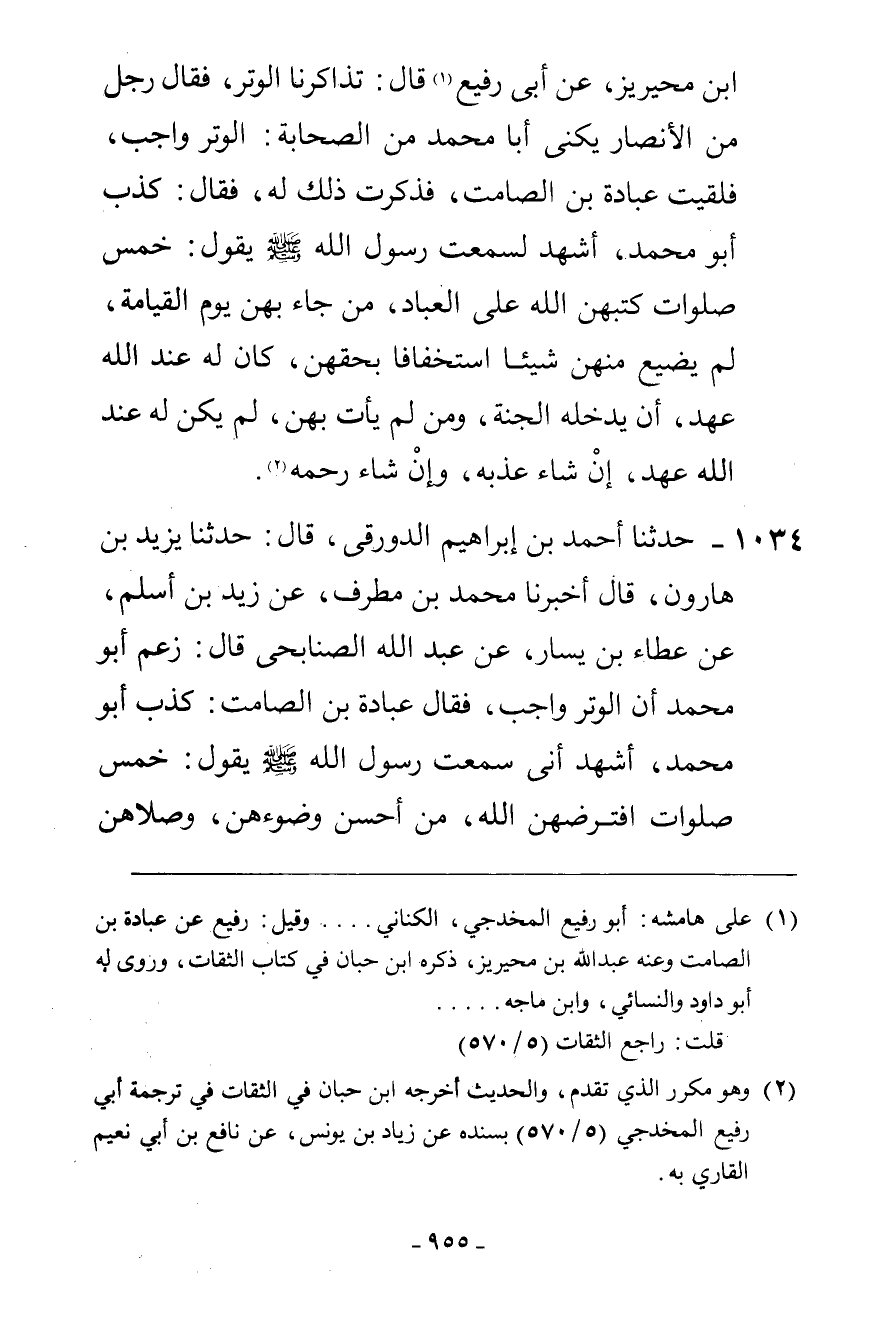 ابن محيريز، عن أبى رفيع(١) قال: تذاكرنا الوتر، فقال رجل
من الأنصار يكنى أبا محمد من الصحابة: الوتر واجب،
فلقيت عبادة بن الصامت، فذكرت ذلك له، فقال: كذب
أبو محمد، أشهد لسمعت رسول الله ﷺ يقول: خمس
صلوات كتبهن الله على العباد، من جاء بهن يوم القيامة،
لم يضيع منهن شيئا استخفافا بحقهن، كان له عند الله
عهد، أن يدخله الجنة، ومن لم يأت بهن، لم يكن له عند
الله عهد، إنْ شاء عذبه، وإنْ شاء رحمه(٢).
١٠٣٤ ـ حدثنا أحمد بن إبراهيم الدورقى، قال: حدثنا يزيد بن
هارون، قال أخبرنا محمد بن مطرف، عن زيد بن أسلم،
عن عطاء بن يسار، عن عبد الله الصنابحى قال: زعم أبو
محمد أن الوتر واجب، فقال عبادة بن الصامت: كذب أبو
محمد، أشهد أنى سمعت رسول الله ﷺ يقول: خمس
صلوات افترضهن الله، من أحسن وضوءهن، وصلاهن
(١) على هامشه: أبو رفيع المخدجي، الكناني.... وقيل: رفيع عن عبادة بن
الصامت وعنه عبدالله بن محيريز، ذكره ابن حبان في كتاب الثقات، وروى له
أبو داود والنسائي، وابن ماجه.....
قلت: راجع الثقات (٥/ ٥٧٠)
(٢) وهو مكرر الذي تقدم، والحديث أخرجه ابن حبان في الثقات في ترجمة أبي
رفيع المخدجي (٥/ ٥٧٠) بسنده عن زياد بن يونس، عن نافع بن أبي نعيم
القاري به.
ـ ٩٥٥ ـ